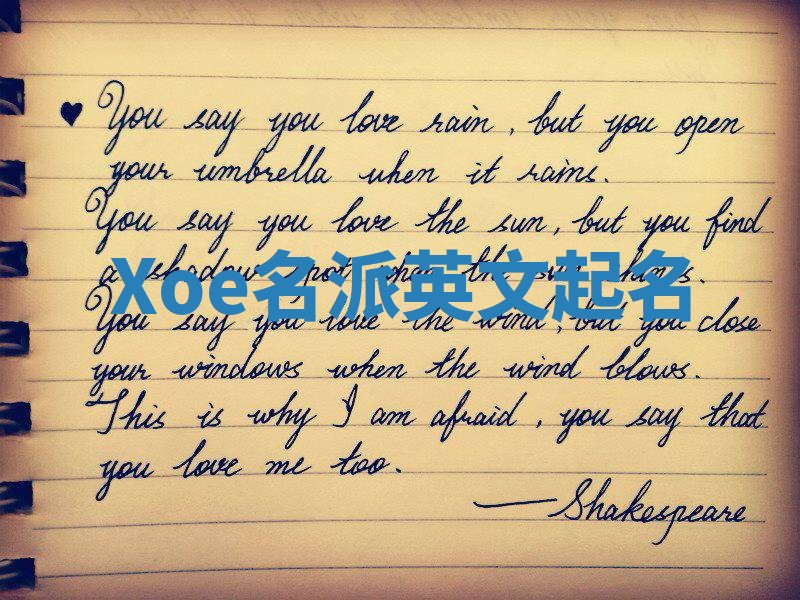 ♥ You say you love rain, but you open
your umbrella when it rains.
You say you love the sun, but you find
a shadow spot when the sun shines.
Xoe名派英文起名
You say you love the wind, but you close
your windows when the wind blows.
This is why I am afraid, you say that
you love me too.
—Shakespeare